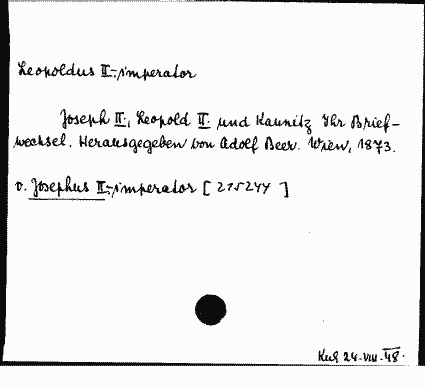 Leopoldus II-imperator
Joseph II., Leopold II. und Kaunitz Ihr Brief-
wechsel. Herausgegeben von Adolf Beer. Wien, 1873.
v. Josephus II-imperator [ 215244 ]
24-VIII-48.